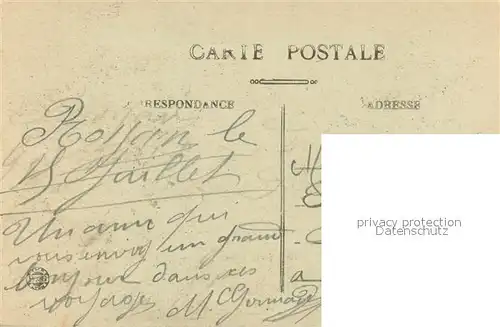 CARTE POSTALE
RESPONDANCE
ADRESSE
le
15 Juillet
Un ami qui
vous envoy un grand
bonjour dans ces
voyages
privacy protection
Datenschutz
a